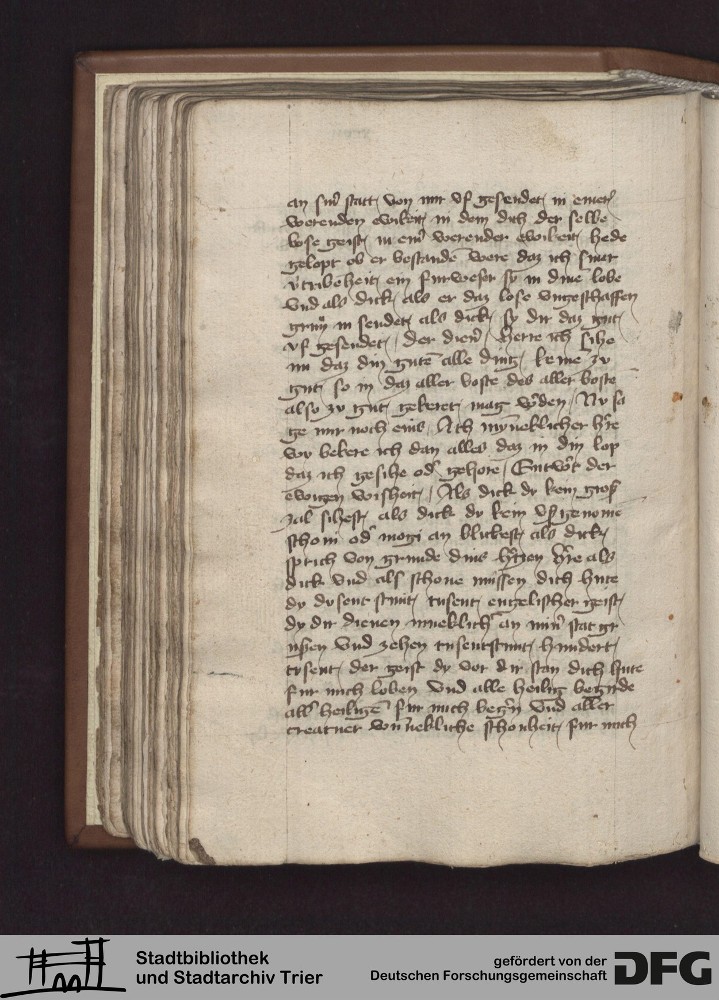 an sin̄ statt von mir vf gesendet in einer
werenden ewikeit in dem dich der selbe
bose geist in ein̄ werender ewikeit hede
gelopt ob er bestande were daz ich siner
v̾tribeheit ein furweser sy in dine lobe
Vnd als dick als er daz lose vngeschaffen
grīm in sendet als dick sy dir daz gut
vf gesendet der dien̾ Herre ich sihe
nu daz din gutē alle ding keine zu
gut so in daz aller boste des aller boste
also zu gut gekeret mag w̾den Nu sa
ge mir noch eins Ach mȳneklicher h̾re
wy bekere ich dan alles daz in din lop
daz ich gesihe od̾ gehore Entw̾t der
ewigen wisheit Als dick du kein groß
zal sihest als dick du kein vßgenome
schoni od̾ mogi an blickest als dick
sprich von grunde dins h̾tzen h̾re als
dick vnd als schone mussen dich hute
du dusent stunt tusent engelischer geist
dy dir dienen mineklich̾ an min̄ stat gr
ußen vnd zehen tusentstunt hundert
tusent der geist dy vor dir stan dich hute
fur mich loben Vnd alle heilig begirde
all̾ heiligē fur mich beg̾n vnd aller
creatuer wūnekliche schonheit fur mich
Stadtbibliothek
und Stadtarchiv Trier
gefördert von der
Deutschen Forschungsgemeinschaft
DFG